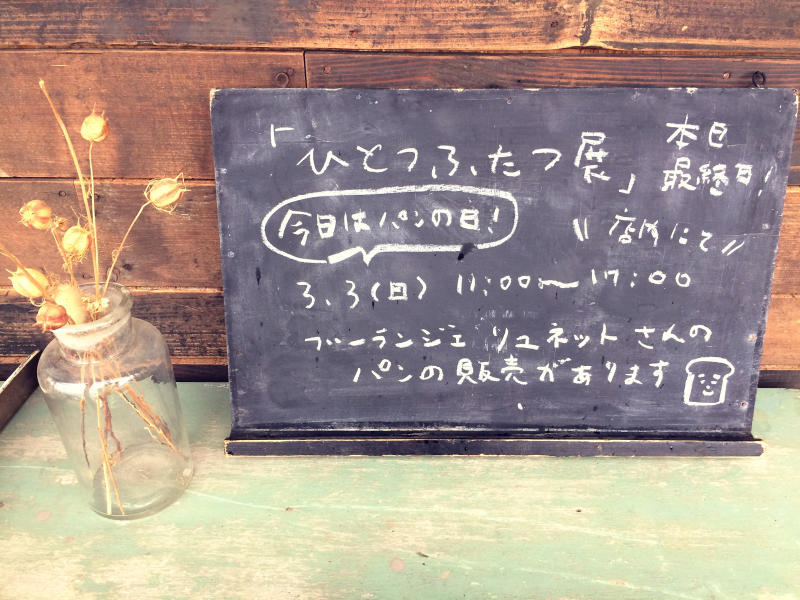 「ひとつ、ふたつ展」
本日
最終日!
今日はパンの日!
〃店内にて〃
3.3(日) 11:00〜17:00
ブーランジェ リュネットさんの
パンの販売があります